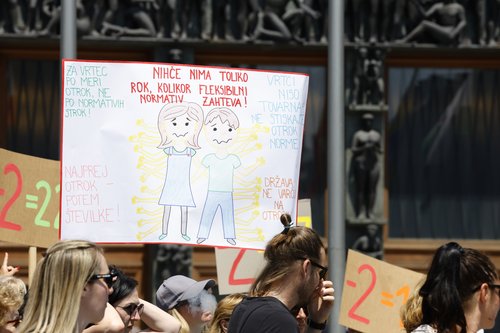 NIHČE NIMA TOLIKO
ROK, KOLIKOR FLEKSIBILNI
NORMATIV ZAHTEVA!
ZA VRTEC
PO MERI
OTROK, NE
PO NORMATIVIH
STROK!
VRTCI
NISO
TOVARNA
NE STISKAJ
OTROK
NORME
NAJPREJ
OTROK -
POTEM
ŠTEVILKE!
DRŽAVA
NE VARČ
NA
OTRO
-2=
2
-2=